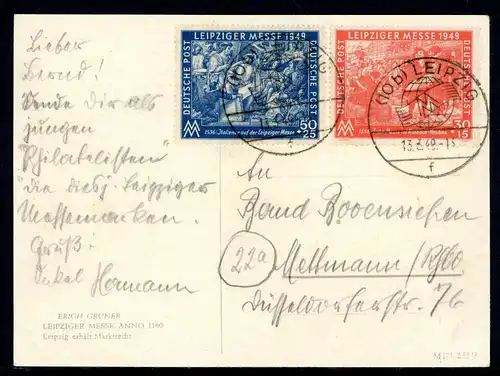 Lieber
Bernd!
Sende Dir als
jungen
"Philatelisten"
die diesj. Leipziger
Messemarken.
Gruß!
Onkel Hermann
ERICH GRUNER
LEIPZIGER MESSE ANNO 1160
Leipzig erhält Marktrecht
LEIPZIGER MESSE 1949
DEUTSCHE POST
DEUTSCHE POST
50
25
1536 "Italiener" auf der Leipziger Messe
LEIPZIGER MESSE 1949
DEUTSCHE POST
DEUTSCHE POST
30
15
(10b) LEIPZIG
f
(10b) LEIPZIG
13.3.49.-13
f
An
Bovensiepen
22a
Mettmann/Rhld
Düsseldorferstr. 76